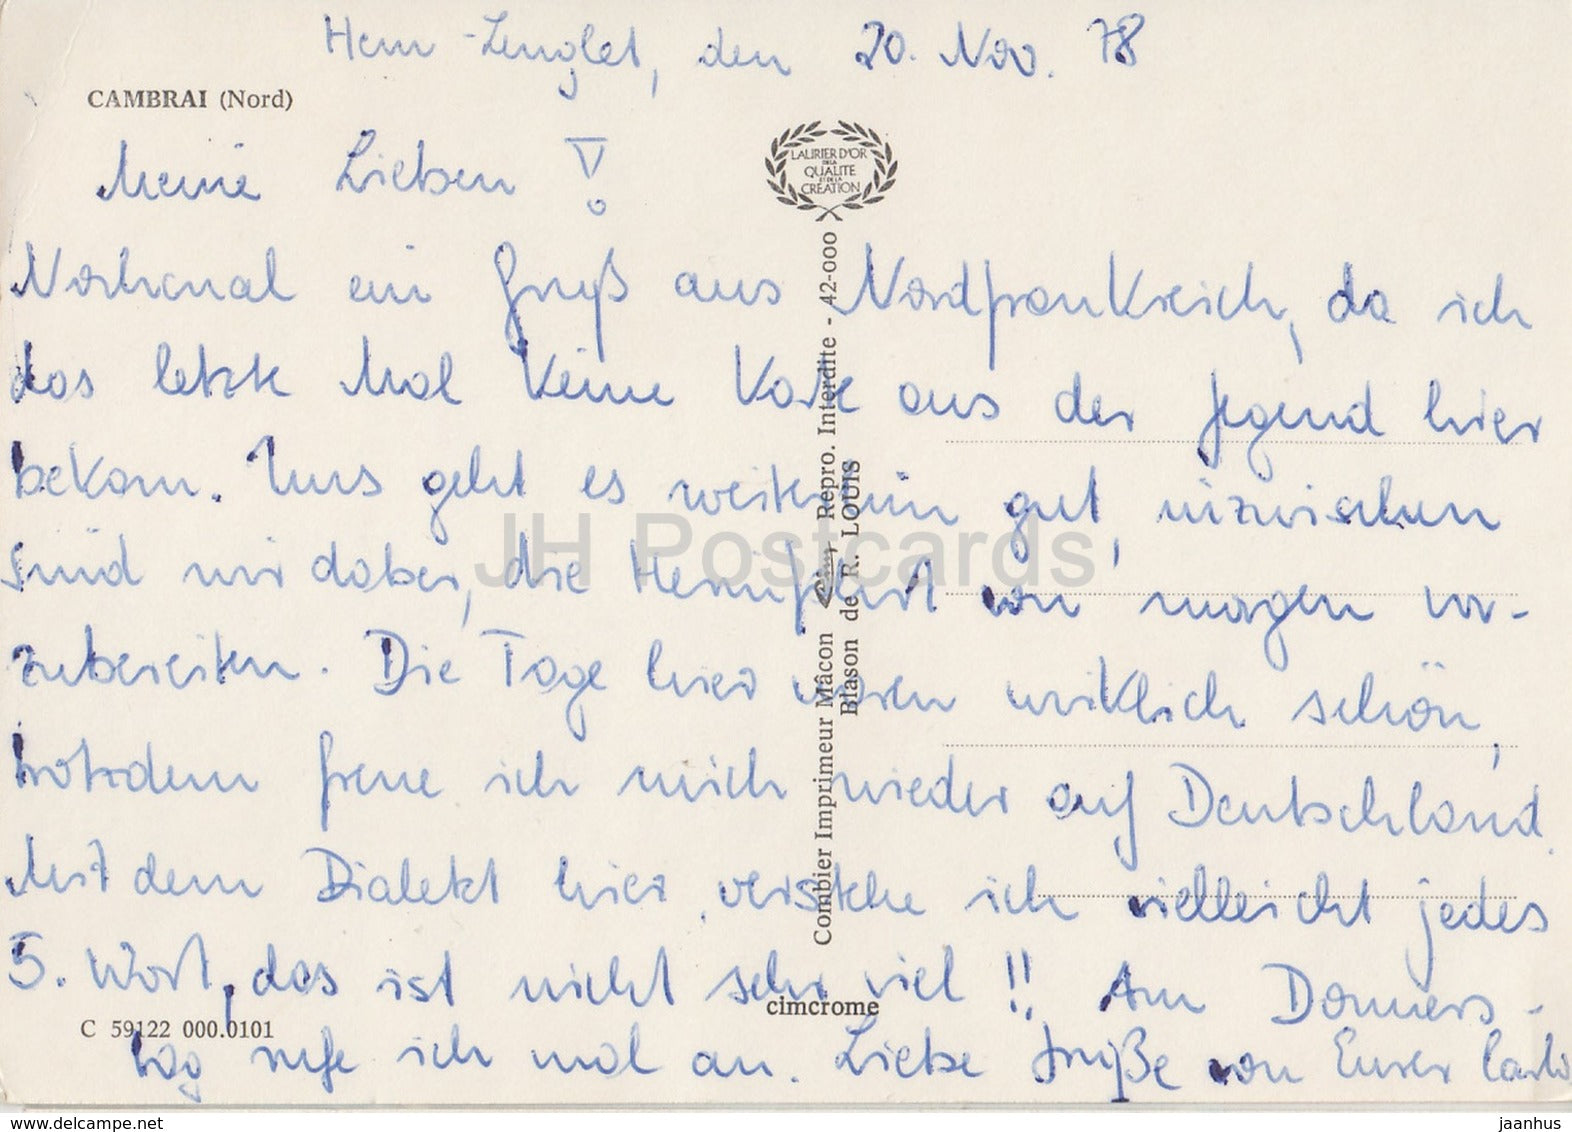 Hem-Lenglet, den 20. Nov. 78
CAMBRAI (Nord)
Meine Lieben!
Nochmal ein Gruß aus Nordfrankreich, da ich
das letzte Mal keine Karte aus der Gegend hier
bekam. Uns geht es weiterhin gut, inzwischen
sind wir dabei, die Heimfahrt von morgen vor-
zubereiten. Die Tage hier waren wirklich schön,
trotzdem freue ich mich wieder auf Deutschland.
Mit dem Dialekt hier verstehe ich vielleicht jedes
5. Wort, das ist nicht sehr viel!! Am Donners-
tag rufe ich mal an. Liebe Grüße von Eurer Carla
C 59122 000.0101
cimcrome
LAURIER D'OR
DE LA
QUALITE
ET DE LA
CREATION
Combier Imprimeur Mâcon Cim, Repro. Interdite - 42-000
Blason de R. LOUIS
JH Postcards
www.delcampe.net
jaanhus